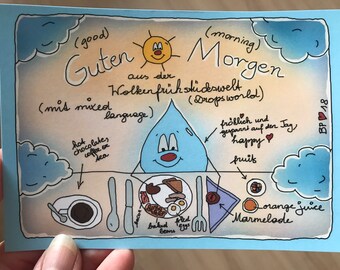 (good)
(morning)
Guten Morgen
aus der
Wolkenfrühstückswelt
(Dropsworld)
(mit mixed
language)
fröhlich und
gespannt auf den Tag
happy
BP ♥ 18
hot
chocolate,
coffee or
tea
fruit
orange juice
Marmelade
baked
beans
fried
eggs